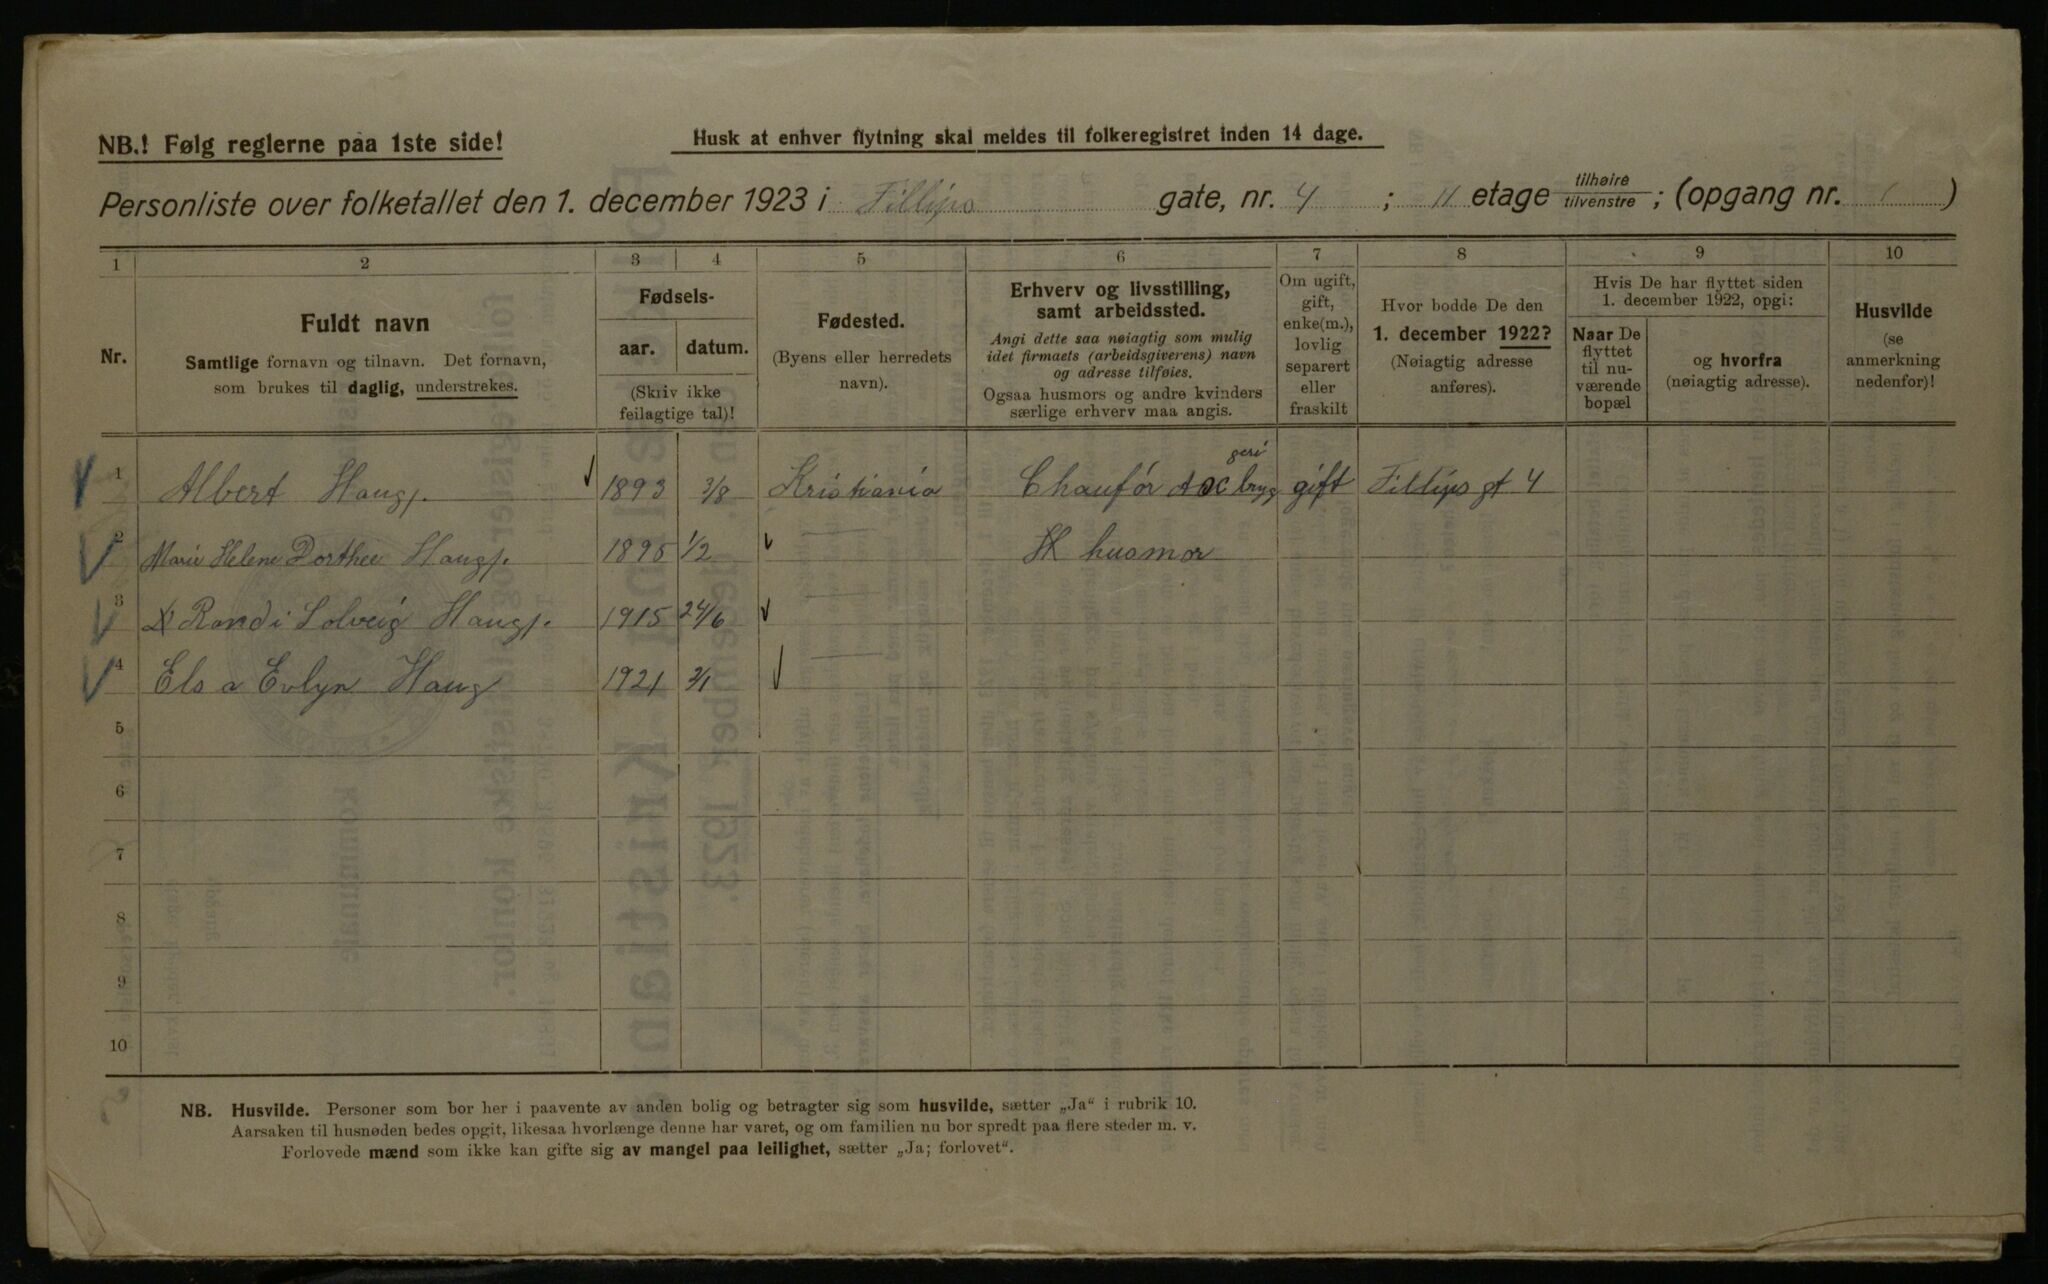 NB.! Følg reglerne paa 1ste side!
Husk at enhver flytning skal meldes til folkeregistret inden 14 dage.
Personliste over folketallet den 1. december 1923 i Fillips gate, nr. 4 ; II etage tilhøire/tilvenstre ; (opgang nr. 1 )
1 2 3 4 5 6 7 8 9 10
Nr.
Fuldt navn
Samtlige fornavn og tilnavn. Det fornavn,
som brukes til daglig, understrekes.
Fødsels-
aar. datum.
(Skriv ikke
feilagtige tal)!
Fødested.
(Byens eller herredets
navn).
Erhverv og livsstilling,
samt arbeidssted.
Angi dette saa nøiagtig som mulig
idet firmaets (arbeidsgiverens) navn
og adresse tilføies.
Ogsaa husmors og andre kvinders
særlige erhverv maa angis.
Om ugift,
gift,
enke(m.),
lovlig
separert
eller
fraskilt
Hvor bodde De den
1. december 1922?
(Nøiagtig adresse
anføres).
Hvis De har flyttet siden
1. december 1922, opgi:
Naar De
flyttet
til nu-
værende
bopæl
og hvorfra
(nøiagtig adresse).
Husvilde
(se
anmerkning
nedenfor)!
1 Albert Haug 1893 3/8 Kristiania Chaufør bryggeri gift Fillips gt 4
2 Marie Helene Dorthee Haug 1895 1/2 — husmor
3 Randi Solveig Haug 1915 24/6 —
4 Elsa Evlyn Haug 1921 3/1 —
5
6
7
8
9
10
NB. Husvilde. Personer som bor her i paavente av anden bolig og betragter sig som husvilde, sætter „Ja“ i rubrik 10.
Aarsaken til husnøden bedes opgit, likesaa hvorlænge denne har varet, og om familien nu bor spredt paa flere steder m. v.
Forlovede mænd som ikke kan gifte sig av mangel paa leilighet, sætter „Ja; forlovet“.